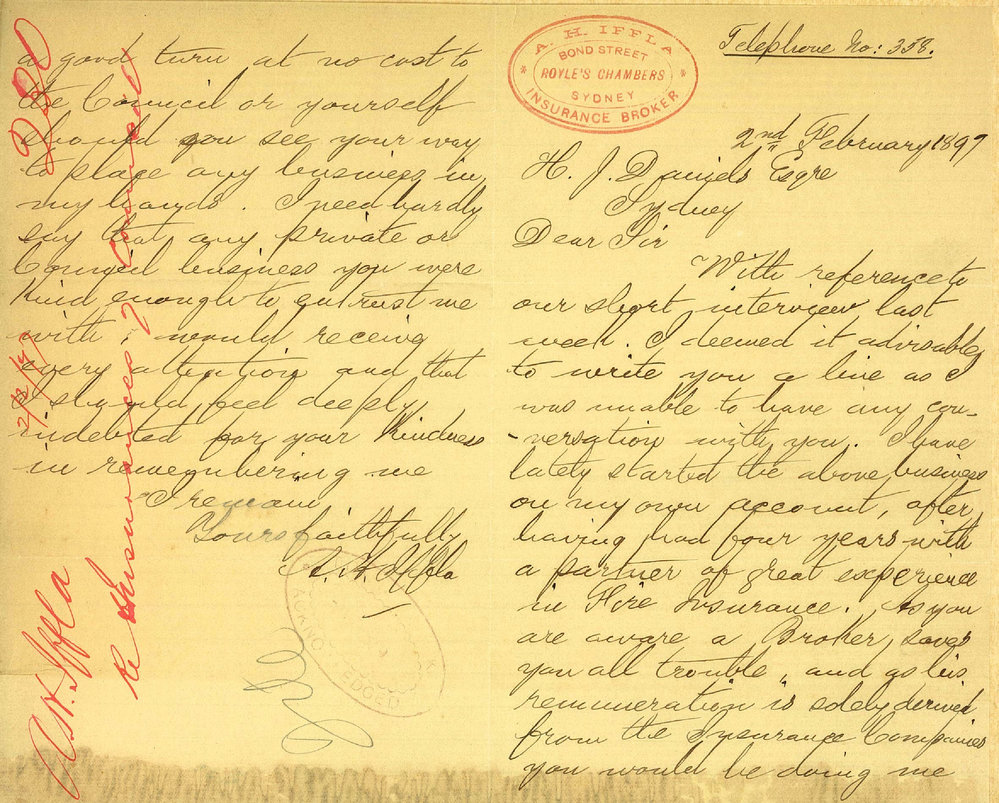 A. H. IFFLA
BOND STREET
ROYLE'S CHAMBERS
SYDNEY
INSURANCE BROKER
Telephone No: 358.
2nd February 1897
H. J. Daniels Esqre
Sydney
Dear Sir
With reference to
our short interview last
week. I deemed it advisable
to write you a line as I
was unable to have any con-
-versation with you. I have
lately started the above business
on my own account, after
having had four years with
a partner of great experience
in Fire Insurance. As you
are aware a Broker, saves
you all trouble, and as his
remuneration is solely derived
from the Insurance Companies
you would be doing me
a good turn at no cost to
the Council or yourself
should you see your way
to place any business in
my hands. I need hardly
say that any private or
Council business you were
kind enough to entrust me
with, would receive
every attention and that
I should feel deeply
indebted for your kindness
in remembering me
I remain
Yours faithfully
A. H. Iffla
ACKNOWLEDGED
A. H. Iffla
re Insurances of Council